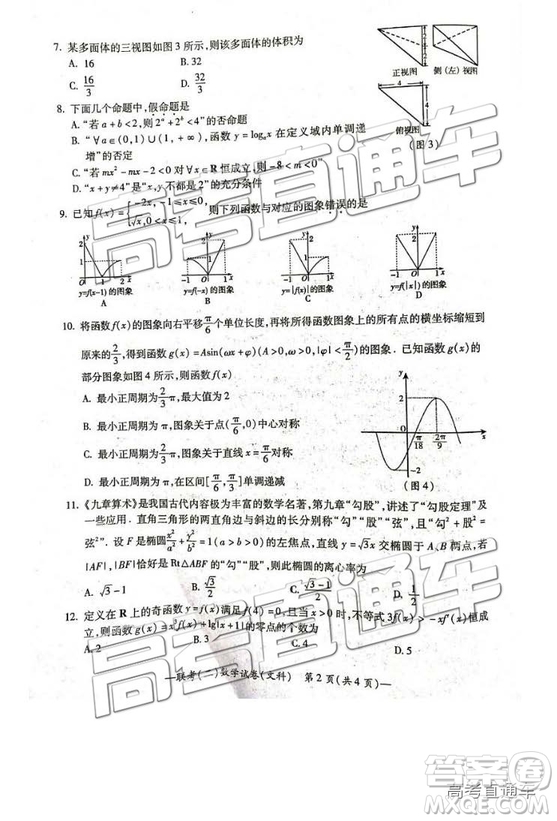 7. 某多面体的三视图如图 3 所示,则该多面体的体积为
A. 16 B. 32
C. 16/3 D. 32/3
正视图 侧(左)视图
4 4
俯视图
(图 3)
8. 下面几个命题中,假命题是
A.“若 a+b<2,则 2^a+2^b<4”的否命题
B.“∀a∈(0,1)∪(1,+∞),函数 y=log_a x 在定义域内单调递
增”的否定
C.“若 mx²-mx-2<0 对 ∀x∈R 恒成立,则-8<m<0”
D.“x+y≠4”是“x,y 不都是 2”的充分条件
9. 已知 f(x)={-2x,-1≤x≤0, √x,0<x≤1, 则下列函数与对应的图象错误的是
y=f(x-1)的图象 y=f(-x)的图象 y=|f(x)|的图象 y=f(|x|)的图象
A B C D
10. 将函数 f(x)的图象向右平移 π/6 个单位长度,再将所得函数图象上的所有点的横坐标缩短到
原来的 2/3,得到函数 g(x)=Asin(ωx+φ)(A>0,ω>0,|φ|<π/2)的图象. 已知函数 g(x)的
部分图象如图 4 所示,则函数 f(x)
A. 最小正周期为 2/3 π,最大值为 2
B. 最小正周期为 π,图象关于点(π/6,0)中心对称
C. 最小正周期为 2/3 π,图象关于直线 x=π/6 对称
D. 最小正周期为 π,在区间[π/6,π/3]单调递减
y 2 O π/18 2π/9 x -2
(图 4)
11.《九章算术》是我国古代内容极为丰富的数学名著,第九章“勾股”,讲述了“勾股定理”及
一些应用. 直角三角形的两直角边与斜边的长分别称“勾”“股”“弦”,且“勾²+股²=
弦²”. 设 F 是椭圆 x²/a²+y²/b²=1(a>b>0)的左焦点,直线 y=√3x 交椭圆于 A、B 两点,若
|AF|,|BF|恰好是 Rt△ABF 的“勾”“股”,则此椭圆的离心率为
A. √3-1 B. √3/2 C. (√3-1)/2 D. 1/2
12. 定义在 R 上的奇函数 y=f(x)满足 f(4)=0,且当 x>0 时,不等式 3f(x)>-xf′(x)恒成
立,则函数 g(x)=x³f(x)+lg|x+1|的零点的个数为
A. 2 B. 3 C. 4 D. 5
—联考(二)数学试卷(文科) 第 2 页(共 4 页)—
高考直通车
高考直通车
答案圈
高考直通车